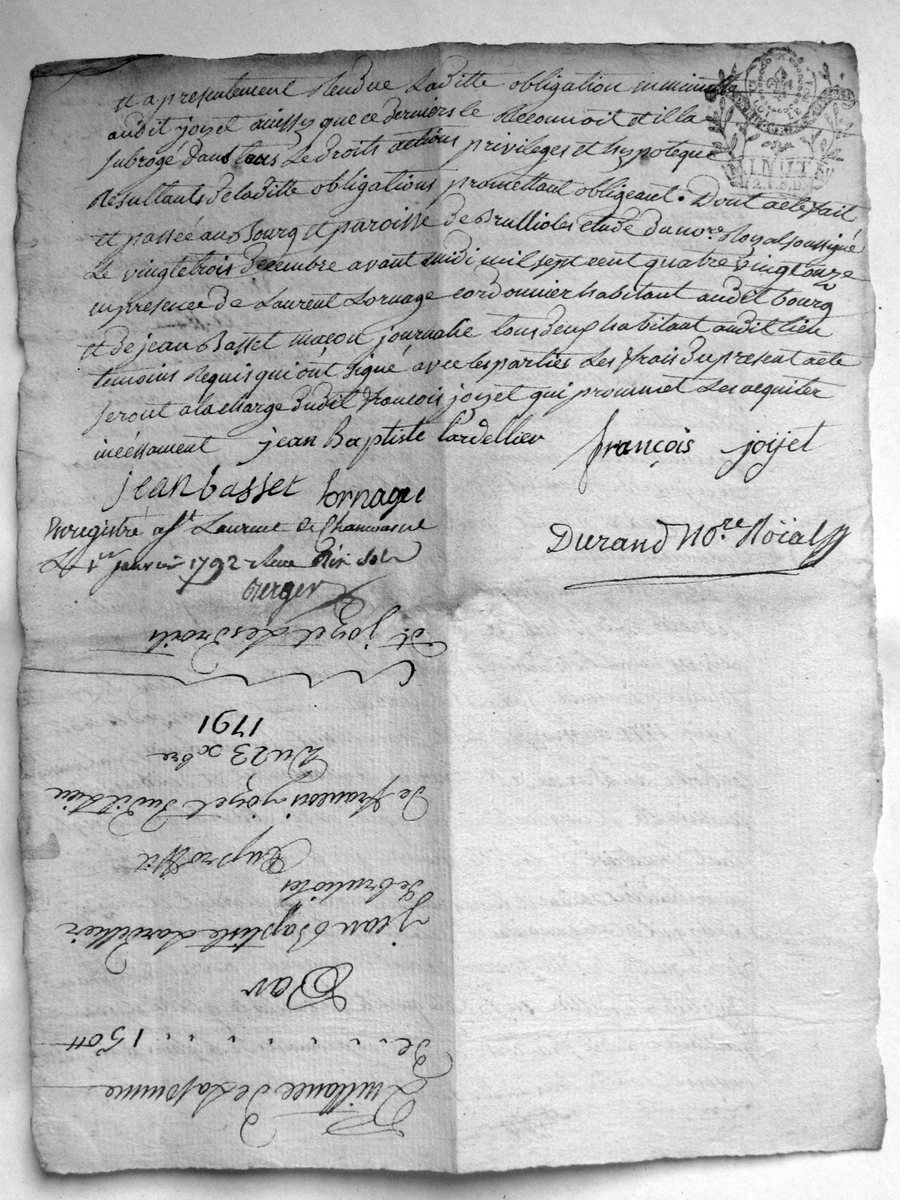 et apresentement Rendue Laditte obligation en minutte
audit joyet aussy que ce derniers le Reconnoit et illa
subrogé dans tous Le droits actions privileges et hypoteque
Resultants deladitte obligations promettant obligeant. Dont acte fait
et passée au Bourg et paroisse de Brullioles etude du nore Royal soussigné
Le vingt trois decembre avant midi mil sept cent quatre vingt onze
en presence de Laurent Lornage cordonnier habitant audit bourg
et de jean Basset maçon journalie tous deux habitant audit lieu
temoins Requis qui ônt signé avec les parties Les frais du present acte
seront alacharge dudit françois joyet qui prommet Les acquiter
incéssament jean Baptiste Lardellier
françois joyet
jean basset Lornage
Durand Nore Roïal
Enregistré a St Laurent de Chamousset
Le 1er janvier 1792 Reçu Dix Sols
Berger
Quittance de La somme
de . . . . . . 150tt
Par
jean Baptiste Lardellier
de brullioles
Au proffit
De francois joyet dudit Lieu
Du 23 xbre
1791
dt joyet les droits